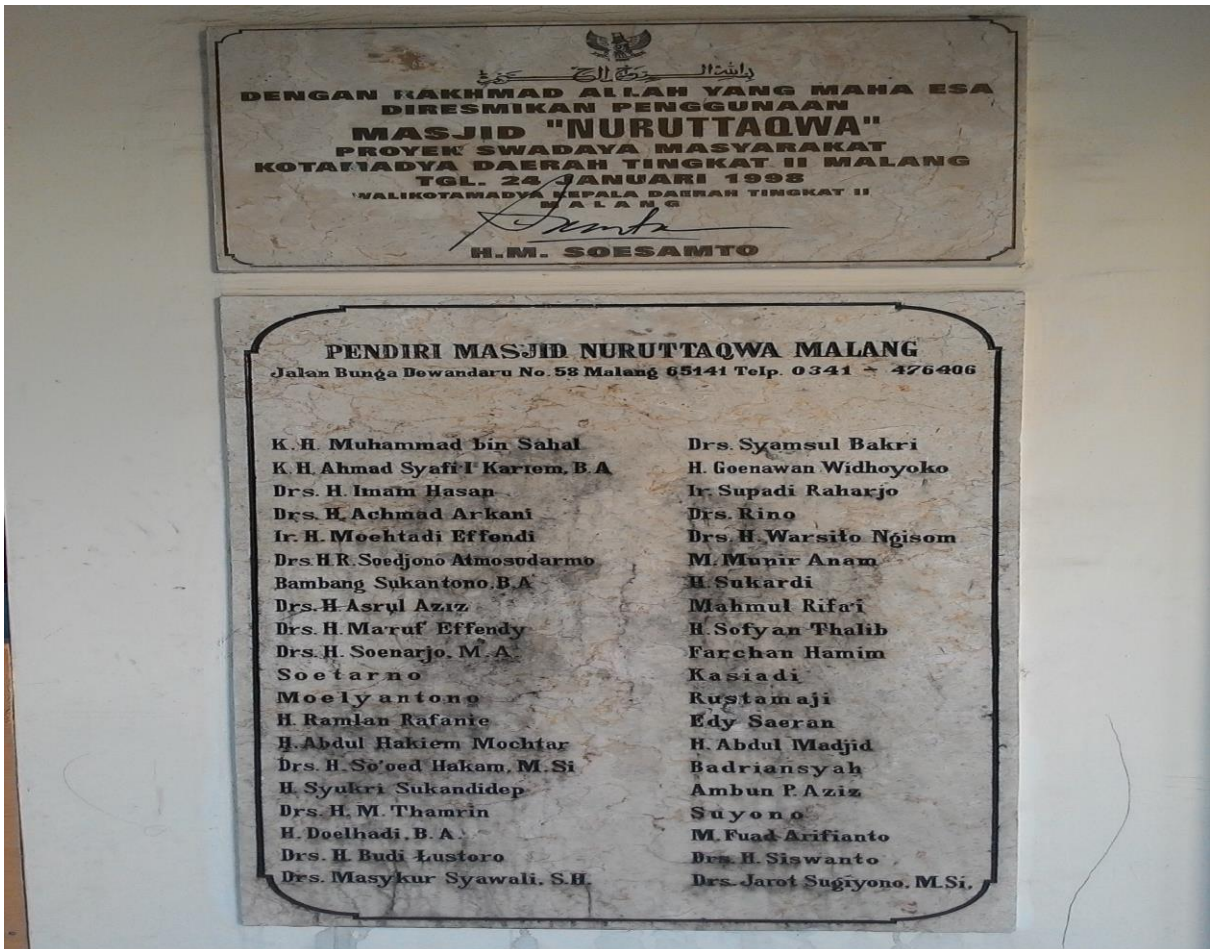 بسم الله الرحمن الرحيم
DENGAN RAKHMAD ALLAH YANG MAHA ESA
DIRESMIKAN PENGGUNAAN
MASJID "NURUTTAQWA"
PROYEK SWADAYA MASYARAKAT
KOTAMADYA DAERAH TINGKAT II MALANG
TGL. 24 JANUARI 1998
WALIKOTAMADYA KEPALA DAERAH TINGKAT II
MALANG
H.M. SOESAMTO
PENDIRI MASJID NURUTTAQWA MALANG
Jalan Bunga Dewandaru No. 58 Malang 65141 Telp. 0341 - 476406
K.H. Muhammad bin Sahal
K.H. Ahmad Syafi'I Kariem, B.A
Drs. H. Imam Hasan
Drs. H. Achmad Arkani
Ir. H. Moehtadi Effendi
Drs. H.R. Soedjono Atmosudarmo
Bambang Sukantono, B.A
Drs. H Asrul Aziz
Drs. H. Ma'ruf Effendy
Drs. H. Soenarjo, M.A.
Soetarno
Moelyantono
H. Ramlan Rafanie
H. Abdul Hakiem Mochtar
Drs. H. So'oed Hakam, M.Si
H. Syukri Sukandidep
Drs. H. M. Thamrin
H. Doelhadi, B.A.
Drs. H. Budi Lustoro
Drs. Masykur Syawali, S.H.
Drs. Syamsul Bakri
H. Goenawan Widhoyoko
Ir. Supadi Raharjo
Drs. Rino
Drs. H. Warsito Ngisom
M. Munir Anam
H. Sukardi
Mahmul Rifa'i
H. Sofyan Thalib
Farchan Hamim
Kasiadi
Rustamaji
Edy Saeran
H. Abdul Madjid
Badriansyah
Ambun P. Aziz
Suyono
M. Fuad Arifianto
Drs. H. Siswanto
Drs. Jarot Sugiyono, M.Si.